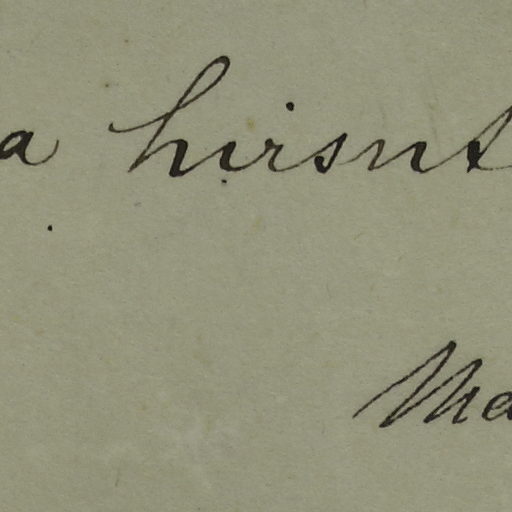 a hirsut
Ma